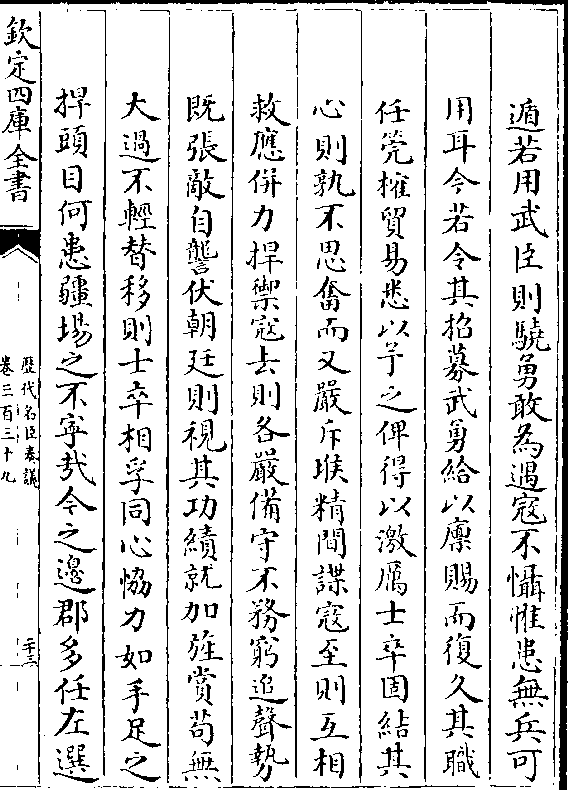 遁若用武臣則驍勇敢為遇寇不懾惟患無兵可
用耳今若令其招募武勇給以廪賜而復久其職
任筦榷貿易悉以予之俾得以激厲士卒固結其
心則孰不思奮而又嚴斥堠精間諜寇至則互相
救應併力捍禦寇去則各嚴備守不務窮追聲勢
既張敵自讋伏朝廷則視其功績就加旌賞苟無
大過不輕替移則士卒相孚同心恊力如手足之
捍頭目何患疆場之不寧哉今之邊郡多任左選
欽定四庫全書
歴代名臣奏議
卷三百三十九
二十三